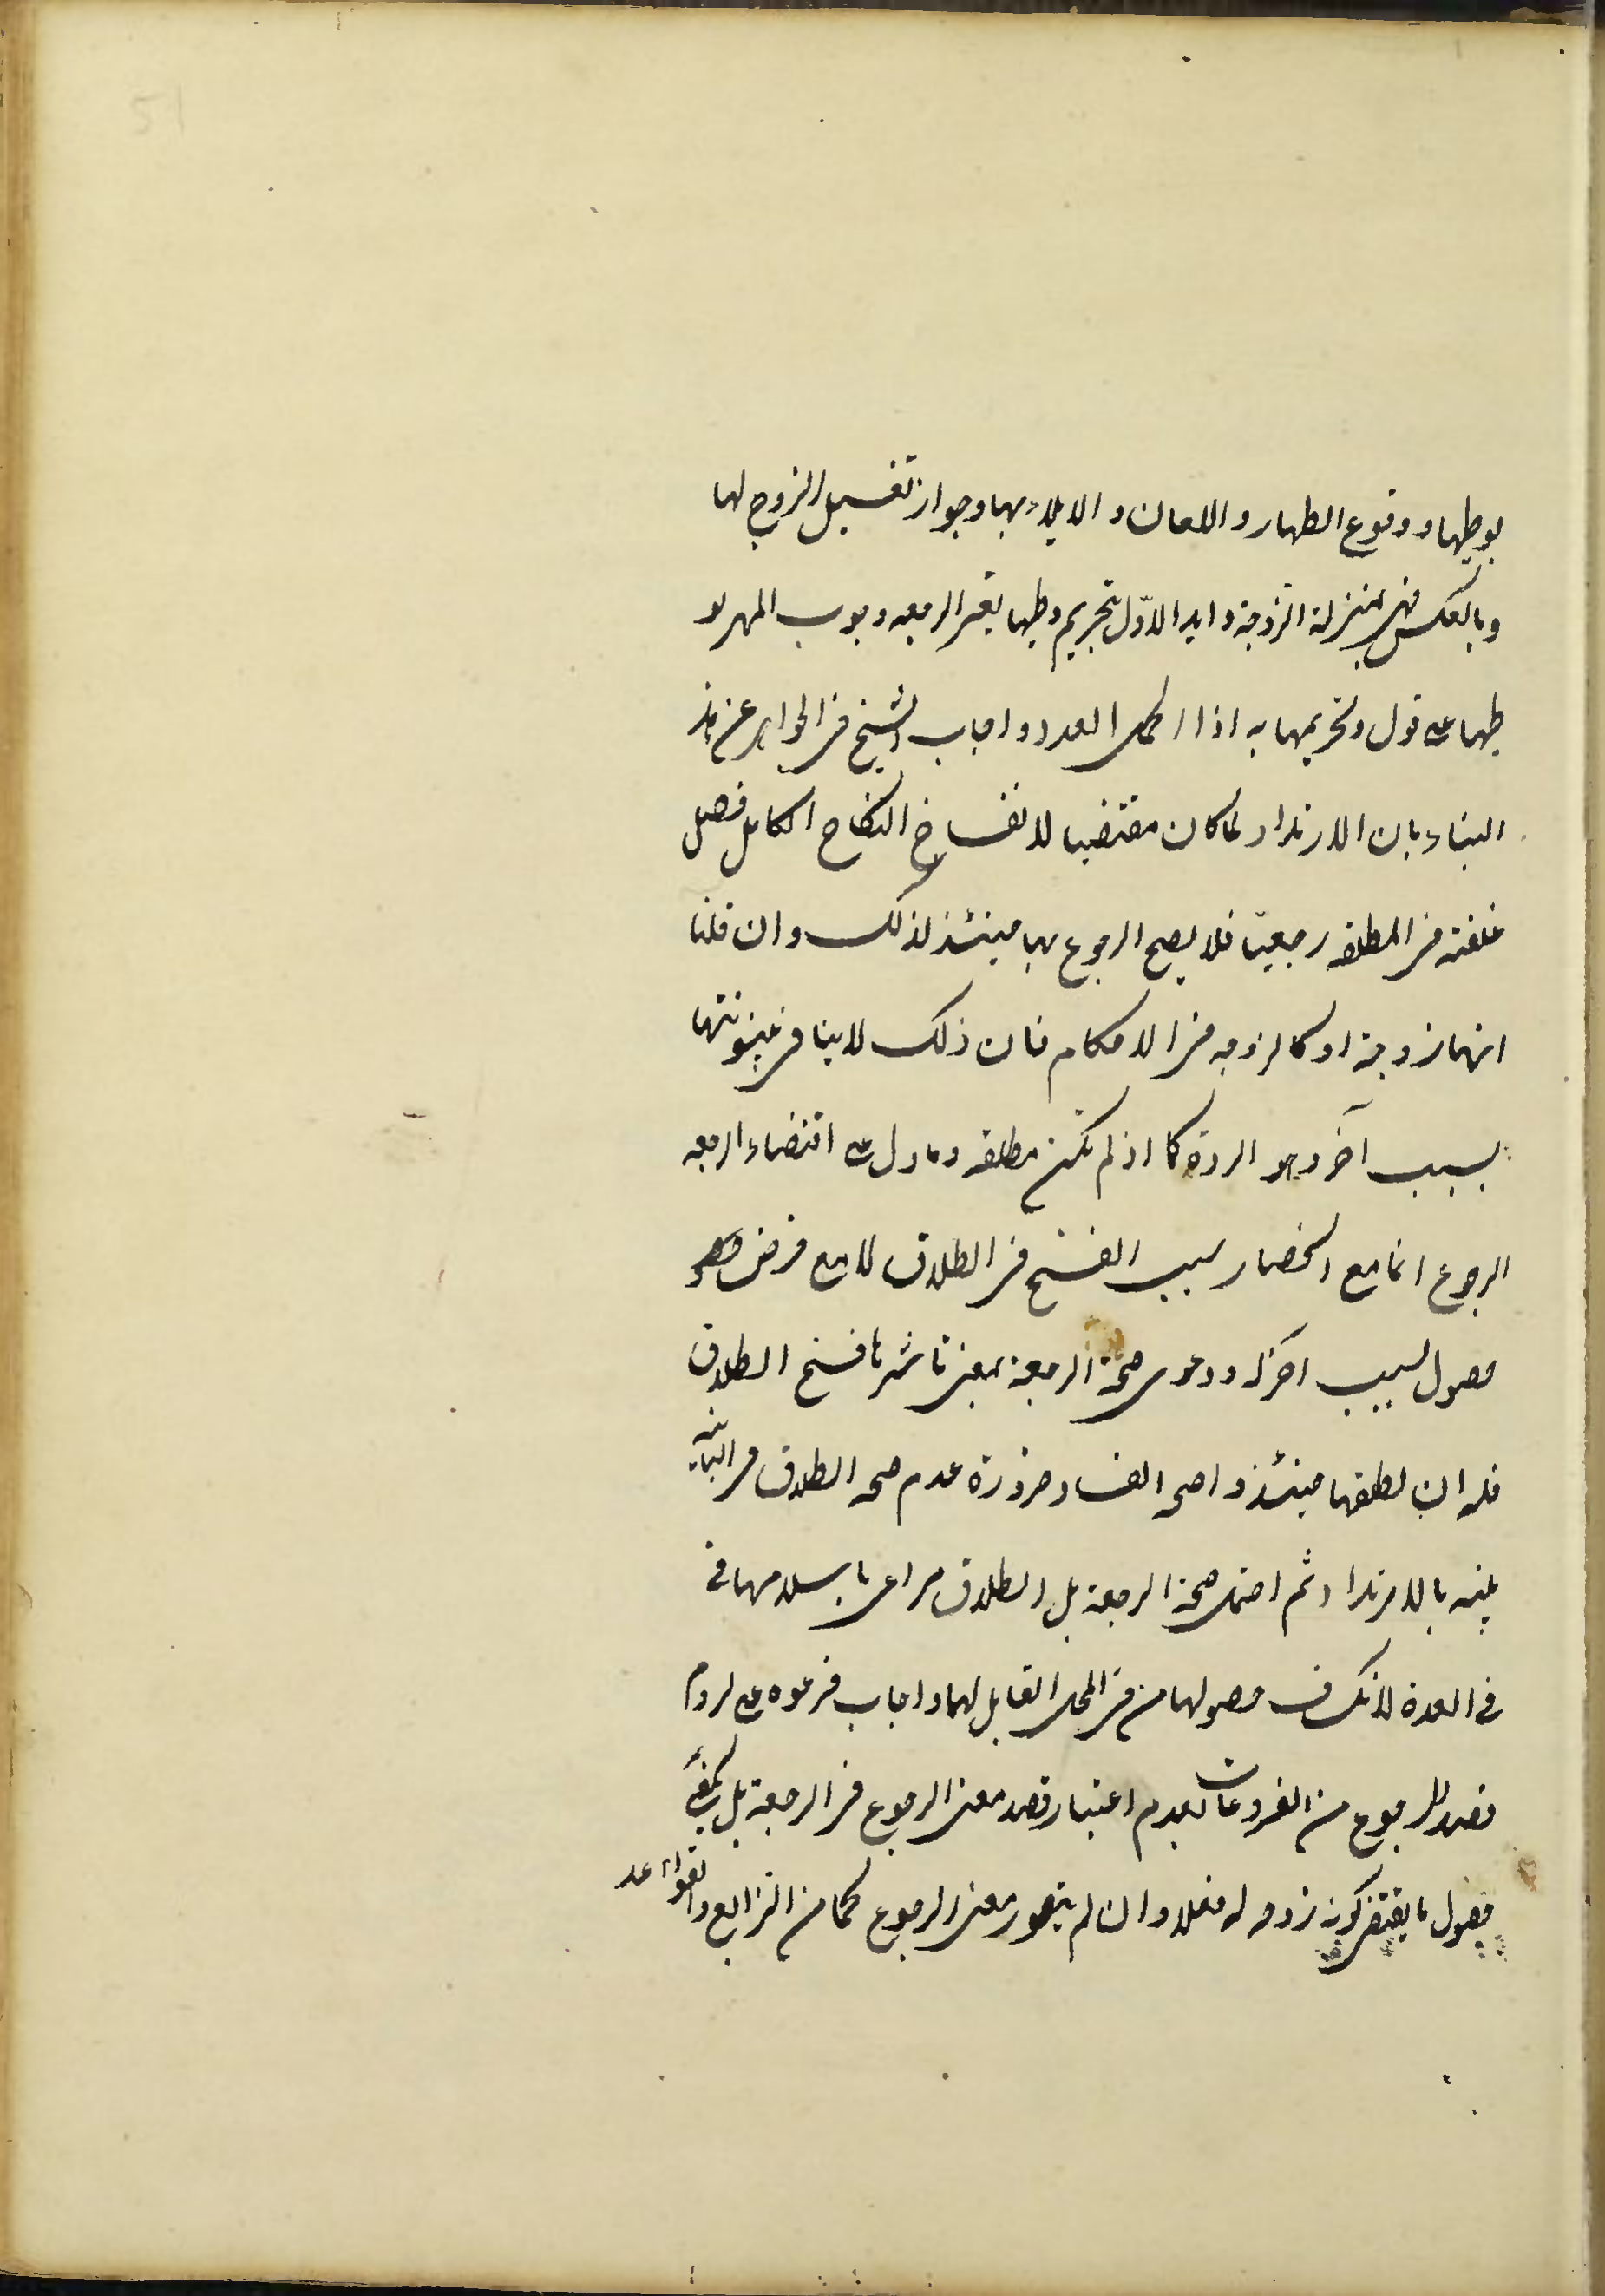 بوطيها ووقوع الظهار واللعان والايلاء بها وجواز تغسيل الزوج لها
وبالعكس فهى بمنزلة الزوجة وايد الاوّل بتحريم وطيها بغير الرجعه ووجوب المهر لو
طها على قول وتحريمها به اذا اكمل العدد واجاب الشيخ فى الجواهر عن هذ
البناء بان الارتداد لما كان مقتضيا لانفساخ النكاح الكامل فصل
علقته فى المطلقه رجعيّا فلا يصح الرجوع بها حينئذ لذلك وان قلنا
انها زوجة او كالزوجه فى الاحكام فان ذلك لا ينافى بينونتها
بسبب آخر وهو الردة كما اذ لم تكن مطلقه وما دل على اقتضاء الرجعه
الرجوع انما مع انحصار سبب الفسخ فى الطلاق لا مع فرض
حصول سبب اخر له ودعوى صحة الرجعة بمعنى تاثيرها فسخ الطلاق
فله ان يطلقها حينئذ واضحه الفساد ضرورة عدم صحه الطلاق فى البائنه
بينه بالارتداد ثم احتمل صحة الرجعة بل الطلاق مراعى باسلامها فى
فى العدة لانكشاف حصولهما من فى المحل القابل لهما واجاب فرعوه على لزوم
قصد الرجوع من الفروعات بعدم اعتبار قصد معنى الرجوع فى الرجعة بل يكفى
حصول ما يقتضى كونه زوجه له فعلا وان لم يتصور معنى الرجوع كما من الشرايع والقواعد